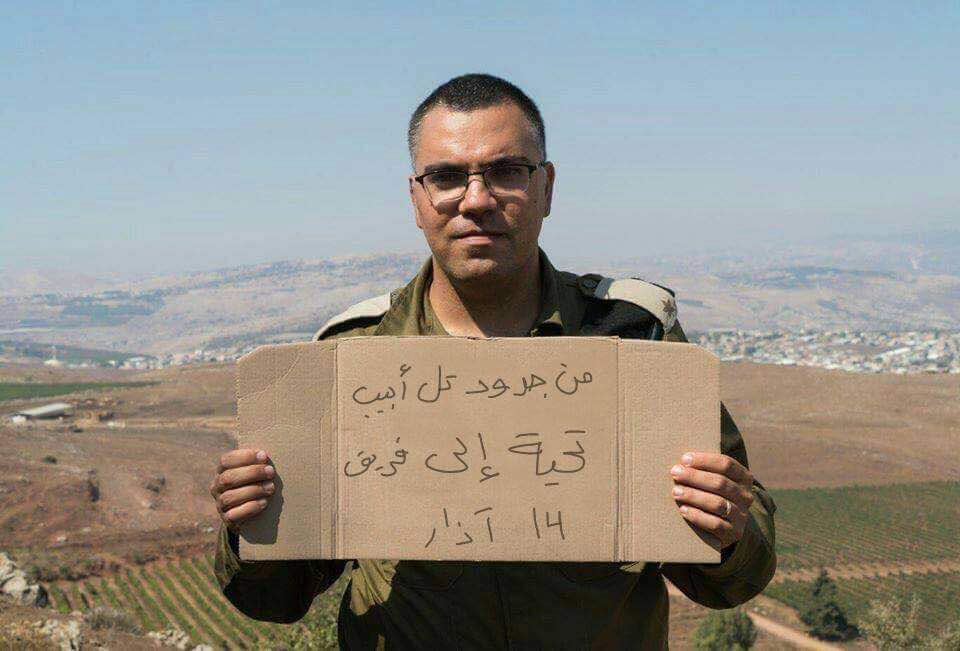 من حدود تل أبيب
تحية إلى فريق
14 آذار